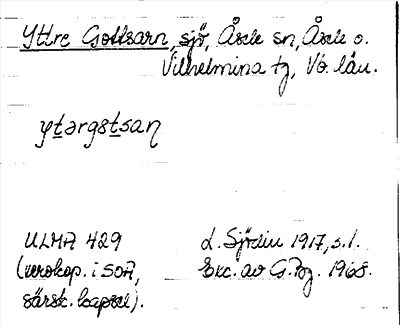 Yttre Gottsarn, sjö, Åsele sn, Åsele o.
Vilhelmina tg, Vb. län.
yt̲ərgst̲saɳ
ULMA 429
(xerokop. i SOA,
särsk. kapsel).
L. Sjödin 1917, s. 1.
Exc. av G. Pzg. 1968.